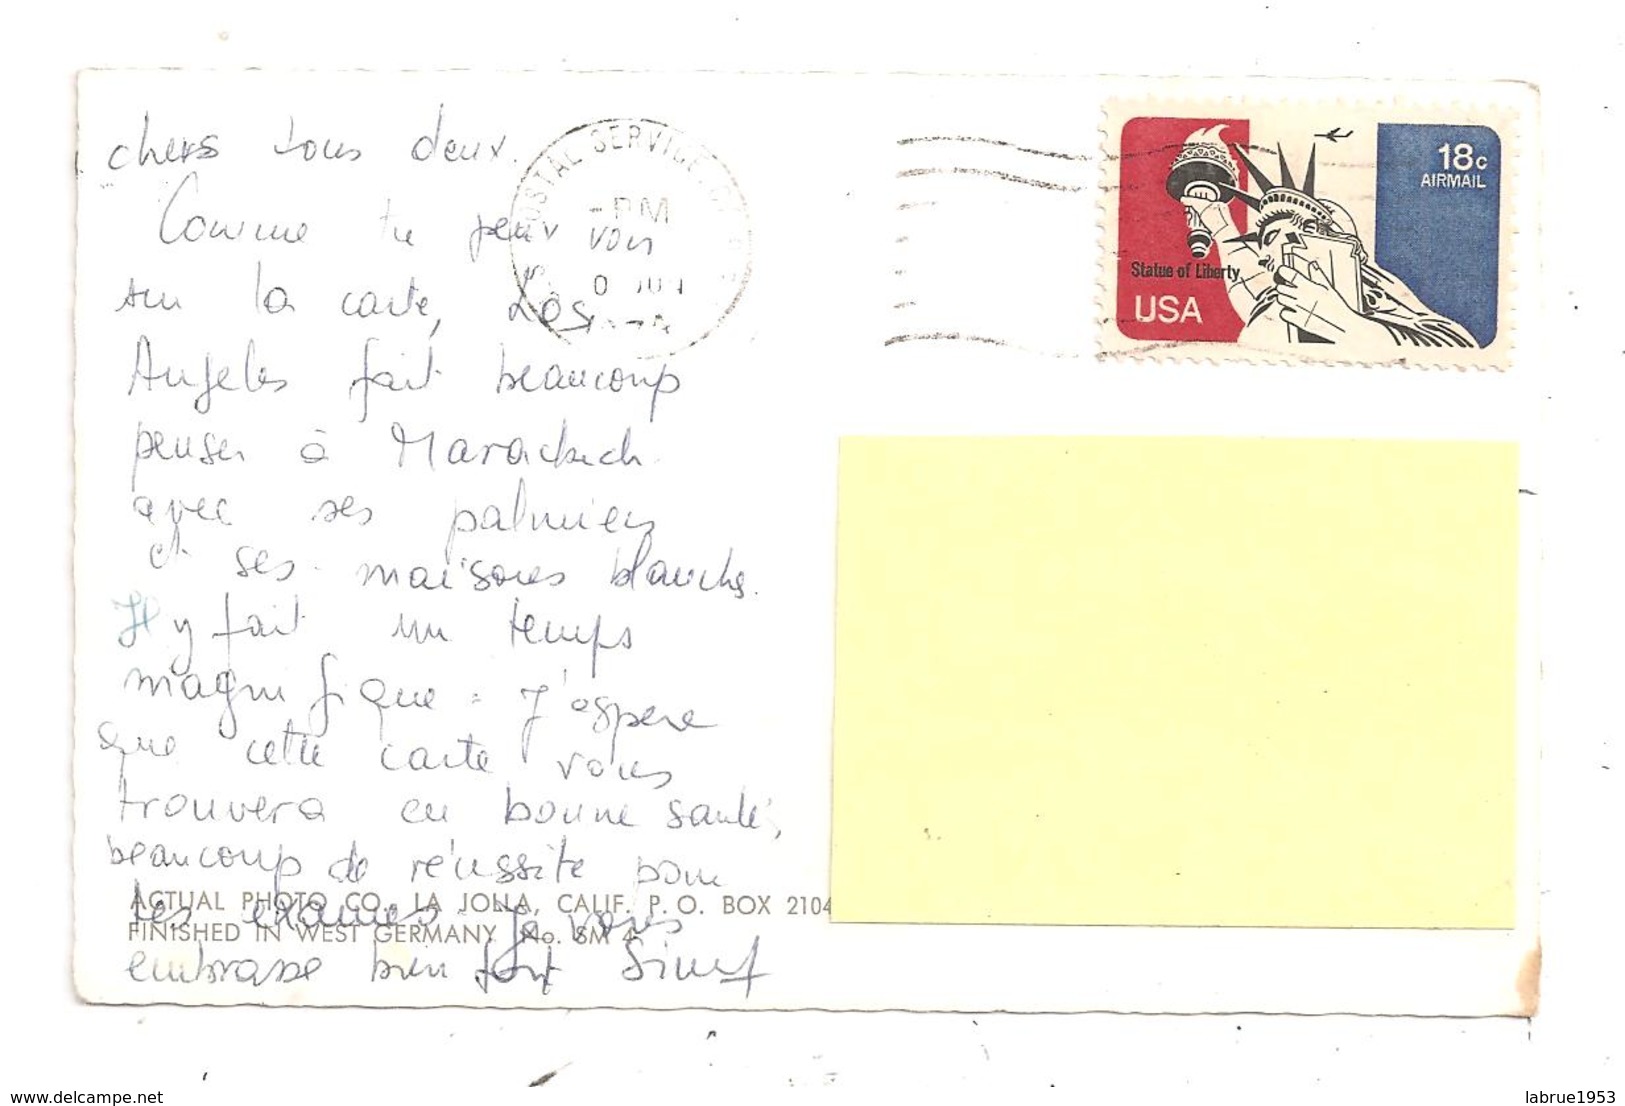 chers tous deux.
Comme tu peux voir
sur la carte, Los
Angeles fait beaucoup
penser à Marackech
avec ses palmiers
et ses maisons blanches.
Il y fait un temps
magnifique. J'espere
que cette carte vous
trouvera en bonne santé,
beaucoup de réussite pour
tes examens. Je vous
embrasse bien fort
ACTUAL PHOTO CO., LA JOLLA, CALIF. P. O. BOX 2104
FINISHED IN WEST GERMANY No. SM 4
POSTAL SERVICE
PM
18c
AIRMAIL
Statue of Liberty
USA
www.delcampe.net
labrue1953